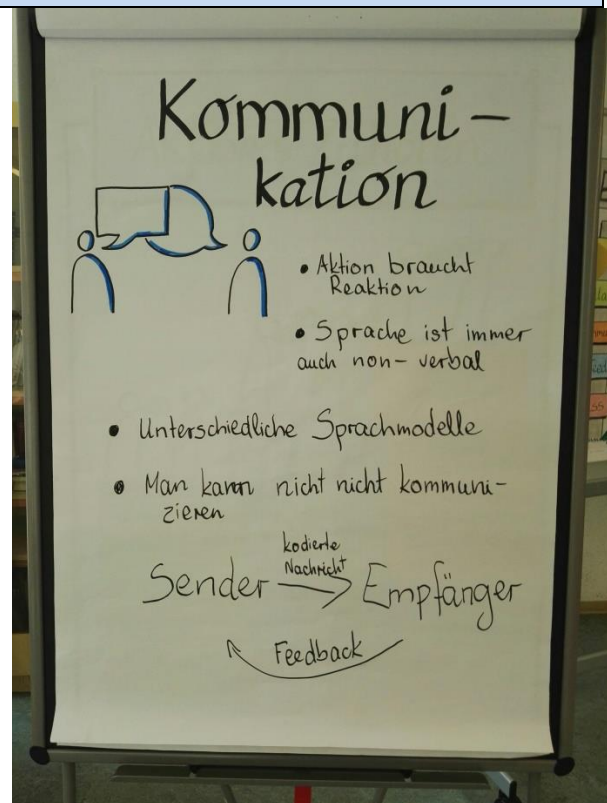 Kommuni-
kation
• Aktion braucht
Reaktion
• Sprache ist immer
auch non-verbal
• Unterschiedliche Sprachmodelle
• Man kann nicht nicht kommuni-
zieren
kodierte
Nachricht
Sender Empfänger
Feedback